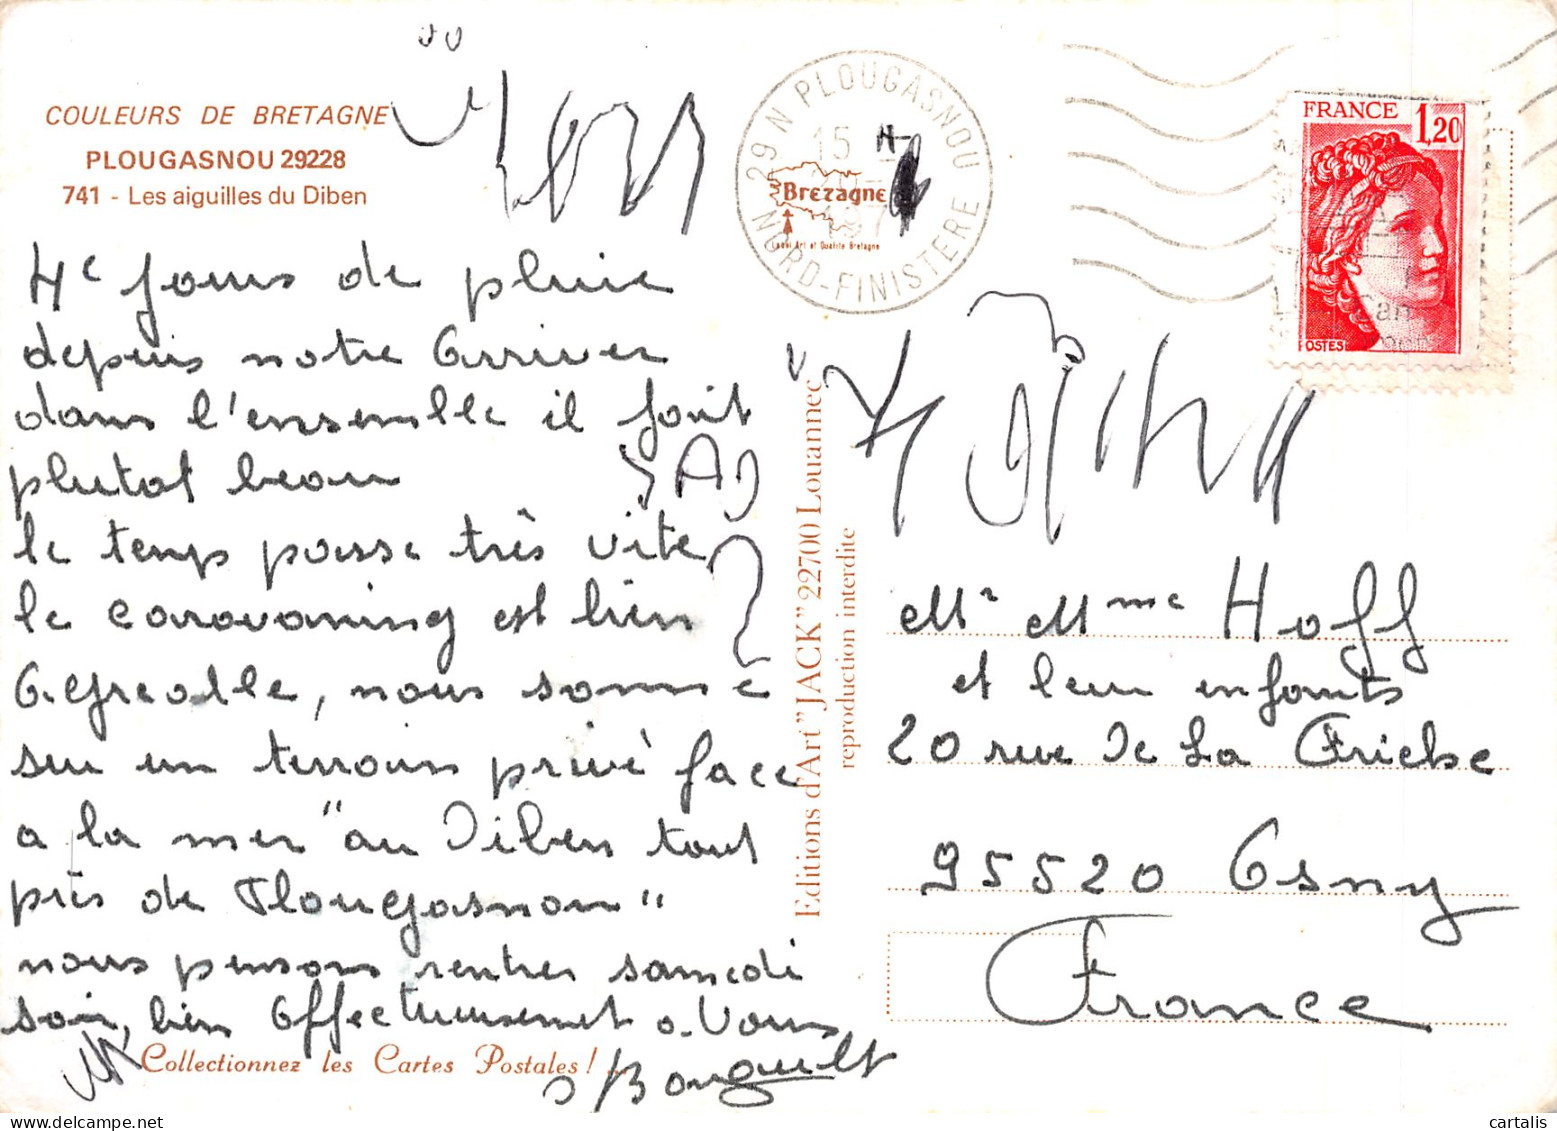 COULEURS DE BRETAGNE
PLOUGASNOU 29228
741 - Les aiguilles du Diben
4e jours de pluie
depuis notre Arriver
dans l'ensemble il fait
plutot beau
le temps passe très vite
le caravaning est bien
Agreable, nous somme
sur un terrain privé face
a la mer "au Diben tout
près de Plougasnou"
nous pensons rentrer samedi
soir, bien Affectueusement a Vous
Collectionnez les Cartes Postales ! ...
Editions d'Art "JACK" 22700 Louannec
reproduction interdite
29 N PLOUGASNOU
15 H
197
NORD-FINISTERE
Bretagne
Label Art et Qualité Bretagne
FRANCE 1,20
POSTES
Mr Mme Hoff
et leur enfants
20 rue de La Friche
95520 Osny
France
cartalis